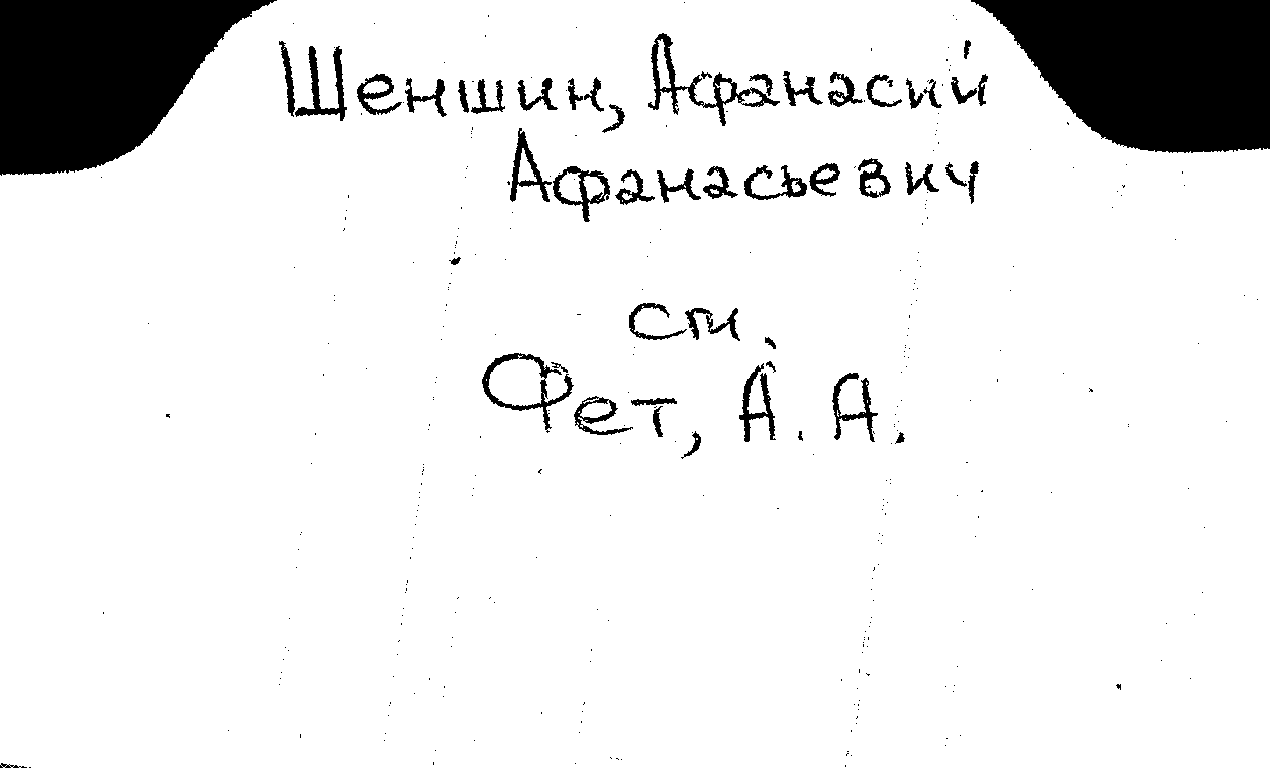 Шеншин, Афанасий
Афанасьевич
см.
Фет, А. А.